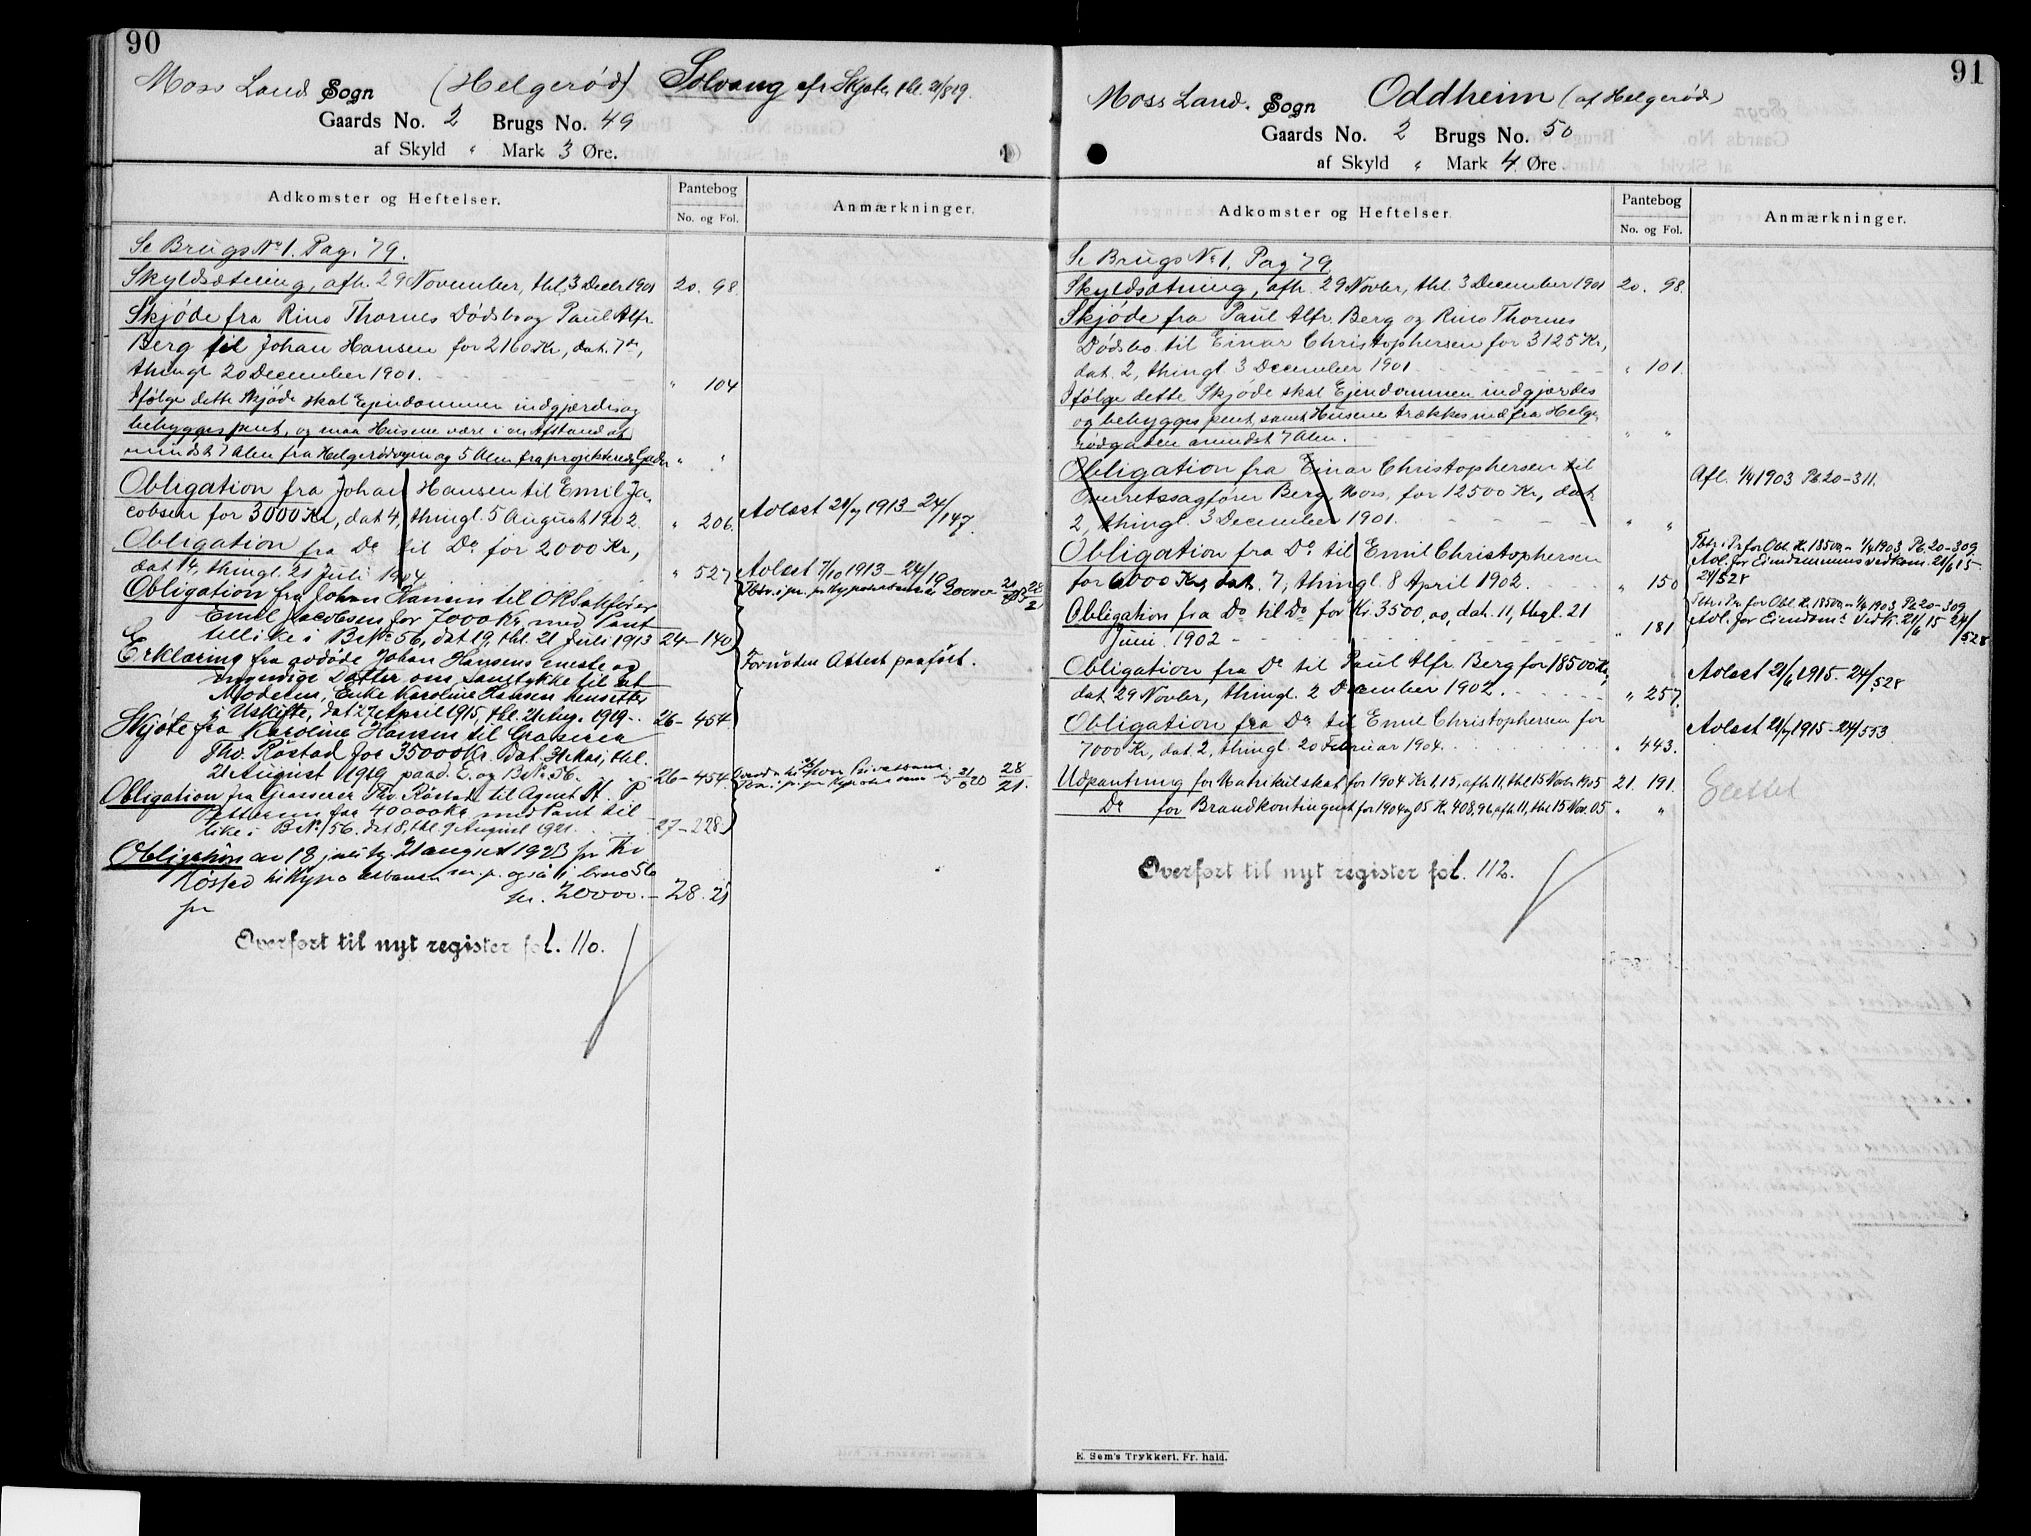 90
Moss Land Sogn (Helgerød) Solvang efr Skjøte thl. 21/8 19.
Gaards No. 2 Brugs No. 49
af Skyld " Mark 3 Øre.
Adkomster og Heftelser.
Pantebog
No. og Fol.
Anmærkninger.
Se Brugs No 1. Pag. 79.
Skyldsætning, afh. 29 November, thl. 3 Decbr 1901 20. 98.
Skjøde fra Rino Thornes Dødsbo og Paul Alfr.
Berg til Johan Hansen for 2160 Kr, dat. 7de,
thingl. 20 December 1901. " 104
Ifølge dette Skjøde skal Ejendommen indgjærdes og
bebygges pent, og maa Husene være i en Afstand af
mindst 7 Alen fra Helgerødvegen og 5 Alen fra projekterede Gader " "
Obligation fra Johan Hansen til Emil Ja-
cobsen for 3000 Kr, dat 4, thingl. 5 August 1902. " 206. Avlæst 21/7 1913 - 24/147.
Obligation fra Do til Do for 2000 Kr,
dat 14, thingl. 21 Juli 1904. " 527 Avlæst 7/10 1913 - 24/19
Obligation fra Johan Hansen til OR Sakfører
Emil Jacobsen for 7000 Kr. med Pant
tillike i B No 56, dat 19, thl. 21 Juli 1913 24-140
Erklæring fra avdøde Johan Hansens eneste og
myndige Datter om Samtykke til at
Moderen, Enke Karoline Hansen hensitter
i Uskifte, dat 27 April 1915, thl. 21 Aug. 1919. 26-454
Foruden Attest paaført.
Skjøte fra Karoline Hansen til Grosserer
Tho. Røstad for 35000 Kr. Dat. 31 Mai, thl.
21 August 1919 paa d. E. og B No 56. 26-454.
Obligation fra Grosserer Tho Røstad til Agent H. P
Pettersen for 40000 Kr med Pant til
like i B No 56. dat 8, thl. 9 August 1921. 27-228
28/21.
Obligation av 18 juli tg. 21 august 1923 fra Tho
Røstad til Hypo banken m. p. også i bno 56
for kr. 20000.- 28. 21
Overført til nyt register fol. 110.
91
Moss Land. Sogn Oddheim (af Helgerød)
Gaards No. 2 Brugs No. 50
af Skyld " Mark 4 Øre.
Adkomster og Heftelser.
Pantebog
No. og Fol.
Anmærkninger.
Se Brugs No 1. Pag 79
Skyldsætning, afh. 29 Novbr, thl. 3 December 1901 20. 98.
Skjøde fra Paul Alfr. Berg og Rino Thornes
Dødsbo til Einar Christophersen for 3125 Kr,
dat. 2, thingl. 3 December 1901. " 101.
Ifølge dette Skjøde skal Ejendommen indgjærdes
og bebygges pent, samt Husene trækkes ind fra Helge-
rødgaden mindst 7 Alen. " "
Obligation fra Einar Christophersen til
Overretssagfører Berg, Moss, for 12500 Kr, dat
2, thingl. 3 December 1901. " "
Afl. 1/4 1903 Pb 20-311.
Obligation fra Do til Emil Christophersen
for 6000 Kr, dat. 7, thingl. 8 April 1902. " 150
Tbtr. i Pr for Obl. Kr. 18500,- 1/4 1903 Pb. 20-309
Avl. for Eiendommens Vedkom. 21/6 15
24/528
Obligation fra Do til Do for Kr. 3500,00, dat. 11, thgl. 21
Juni 1902 " 181
Tbtr. i Pr for Obl. Kr. 18500,- 1/4 1903 Pb 20-309
Avl. for Eiendoms Vedk. 21/6 15 24/528
Obligation fra Do til Paul Alfr. Berg for 18500 Kr,
dat 29 Novbr, thingl. 2 December 1902. " 257.
Avlæst 21/6 1915 - 24/528
Obligation fra Do til Emil Christophersen for
7000 Kr, dat. 2, thingl. 20 Februar 1904. " 443.
Avlæst 21/7 1915 - 24/553
Udpantning for Matrikulskat for 1904 Kr 1,15, afh. 11, thl. 15 Novbr. 1905 21. 191.
Do for Brandkontingent for 1904 og 05 Kr. 408,96, afh. 11, thl. 15 Nov. 05 " "
Slettet
Overført til nyt register fol. 112.
E. Sem's Trykkeri, Fr. hald.